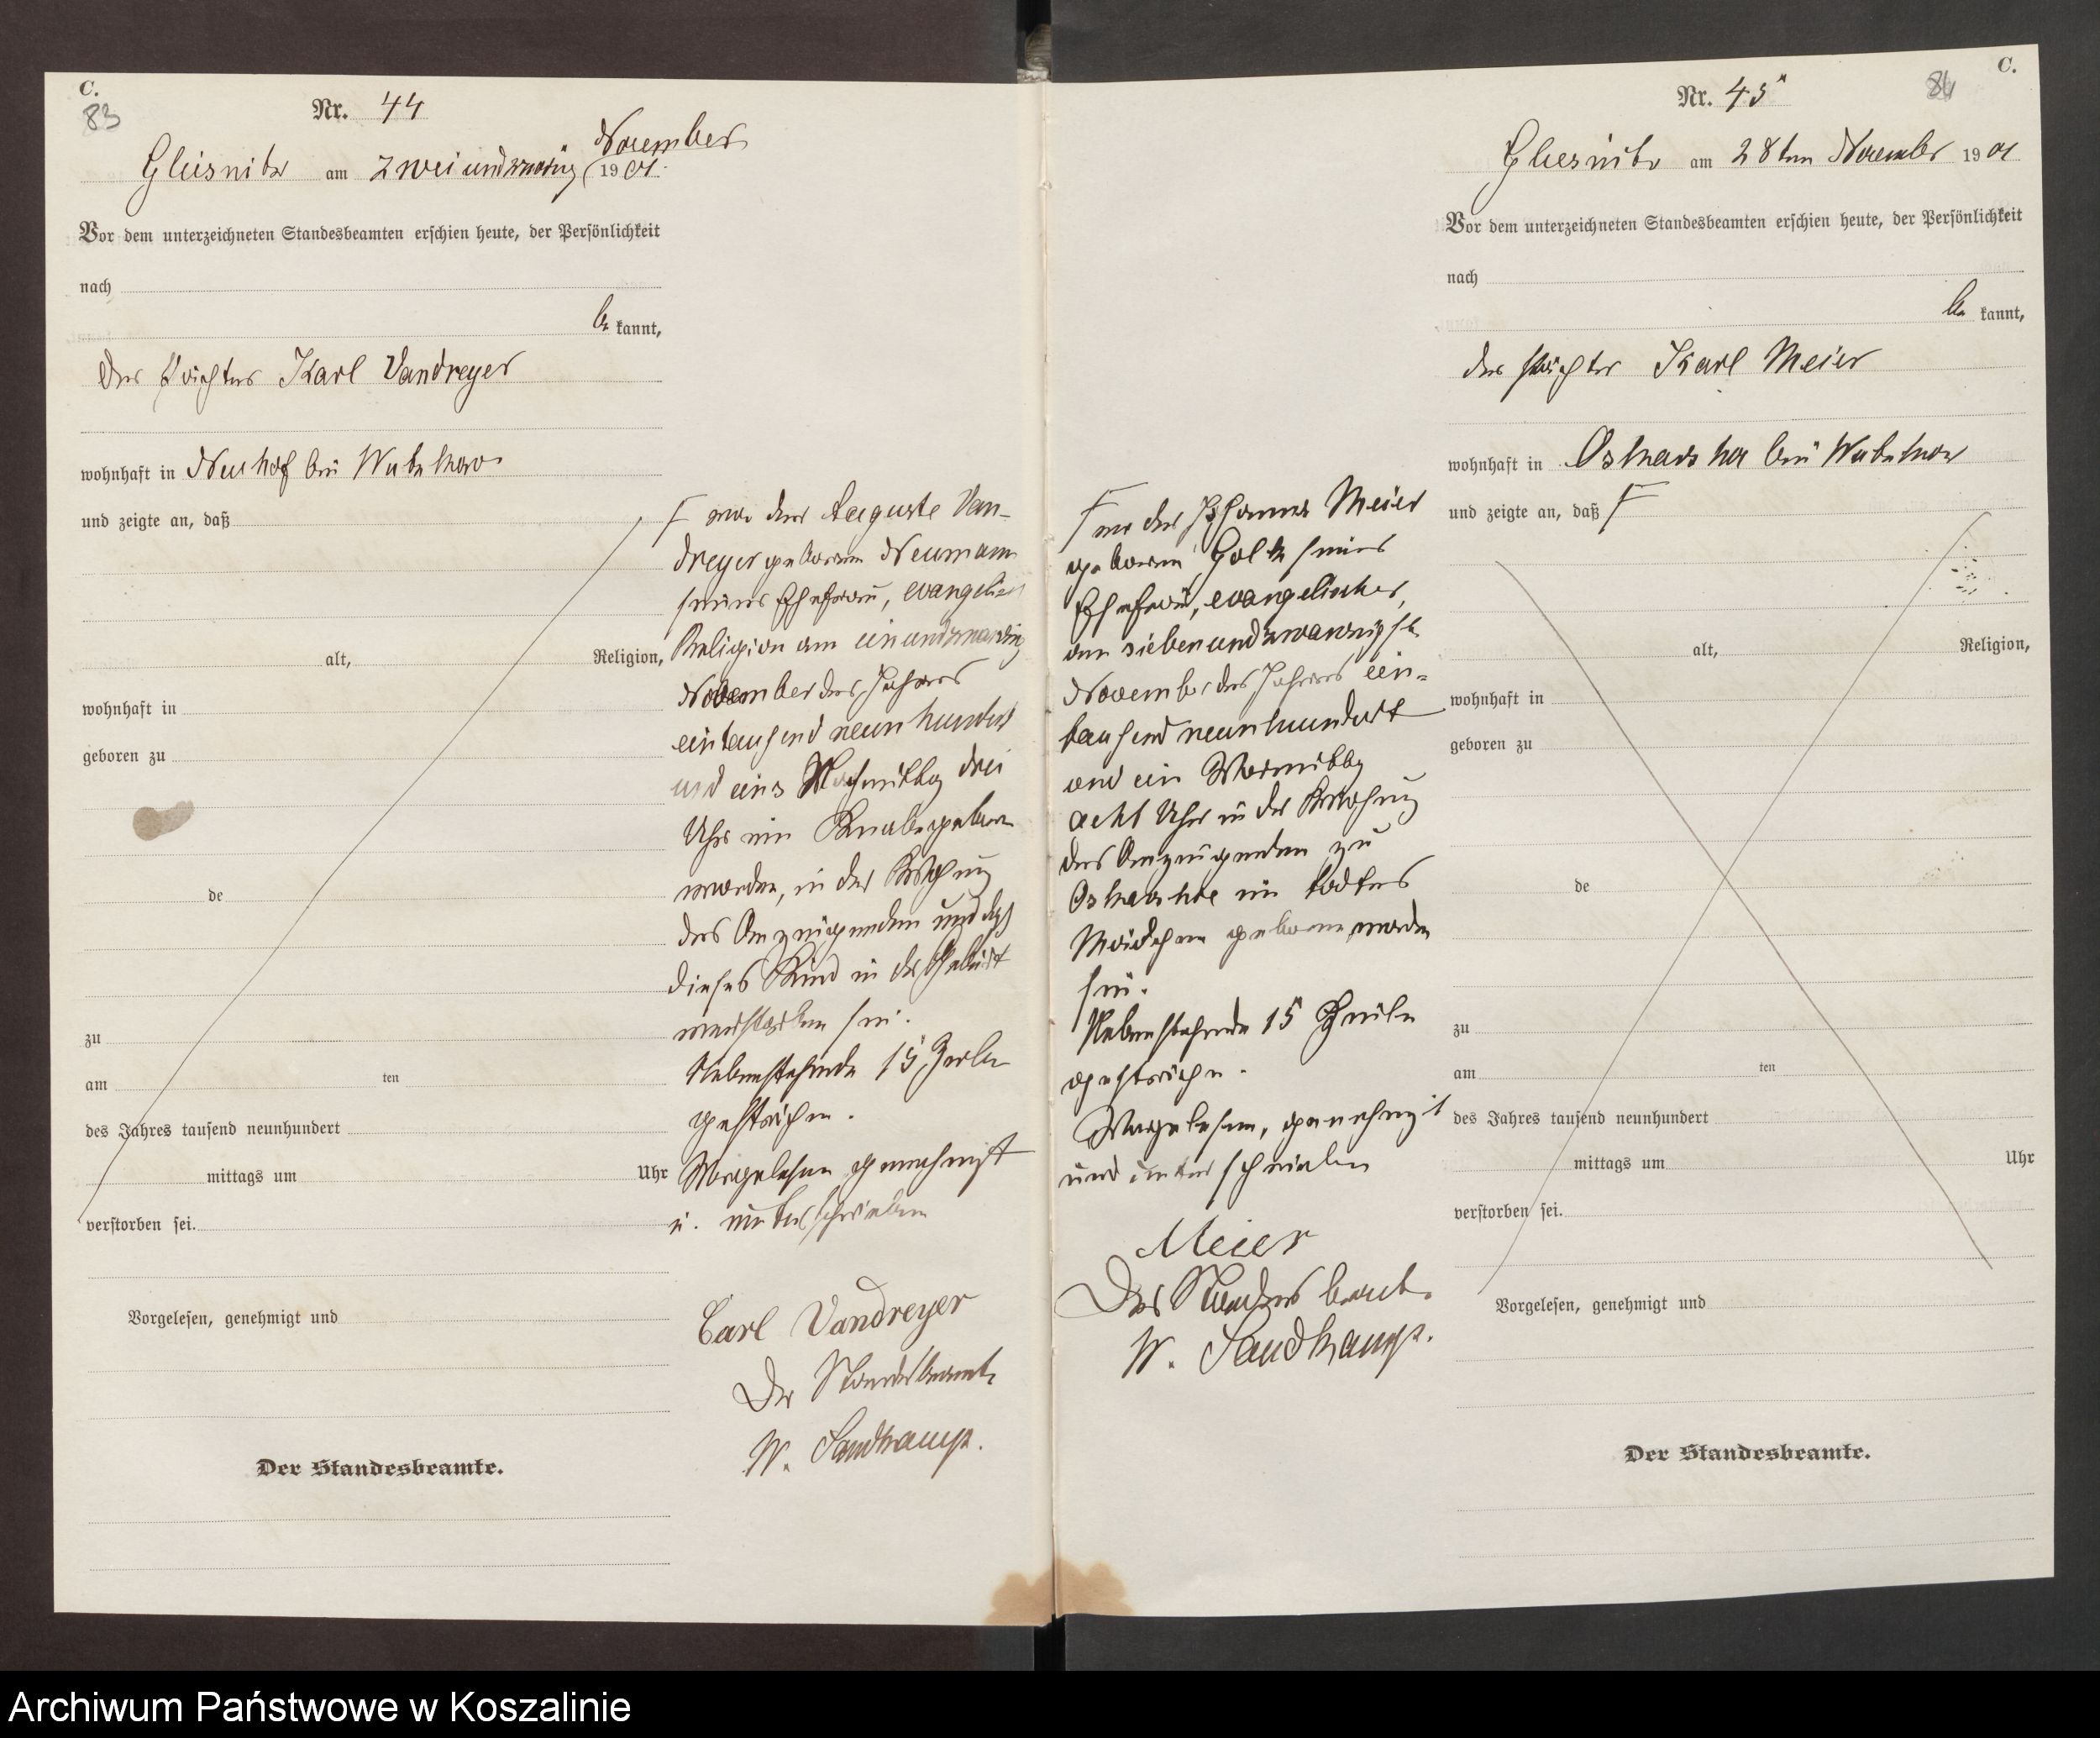 C.
83
Nr. 44
November
Gliesnitz am zweiundzwanzig 1901.
Vor dem unterzeichneten Standesbeamten erschien heute, der Persönlichkeit
nach
be kannt,
der Pächter Karl Vandreyer
wohnhaft in Neuhof bei Wutzkow
und zeigte an, daß
alt, Religion,
wohnhaft in
geboren zu
de
zu
am ten
des Jahres tausend neunhundert
mittags um Uhr
verstorben sei.
Vorgelesen, genehmigt und
Der Standesbeamte.
von der Auguste Van-
dreyer geborenen Neumann
seiner Ehefrau, evangelisch
Religion am einundzwanzig
November des Jahres
eintausend neun hundert
und eins Nachmittag drei
Uhr ein Knabe geboren
worden, in der Wohnung
des Anzeigenden und daß
dieses Kind in der Geburt
verstorben sei.
Nebenstehende 15 Zeilen
gestrichen.
Vorgelesen genehmigt
u. unterschrieben
Carl Vandreyer
Der Standesbeamte
W. Sandkamp.
C.
84
Nr. 45
Gliesnitz am 28ten November 1901
Vor dem unterzeichneten Standesbeamten erschien heute, der Persönlichkeit
nach
be kannt,
der Pächter Karl Meier
wohnhaft in bei Wutzkow
und zeigte an, daß
alt, Religion,
wohnhaft in
geboren zu
de
zu
am ten
des Jahres tausend neunhundert
mittags um Uhr
verstorben sei.
Vorgelesen, genehmigt und
Der Standesbeamte.
von der Johanna Meier
geborenen seiner
Ehefrau, evangelischer,
am siebenundzwanzigste
November des Jahres ein-
tausend neunhundert
und ein Vormittag
acht Uhr in der Wohnung
des Anzeigenden zu
ein todtes
Mädchen geboren worden
sei.
Nebenstehende 15 Zeilen
gestrichen.
Vorgelesen, genehmigt
und unterschrieben
Meier
Der Standesbeamte
W. Sandkamp.
Archiwum Państwowe w Koszalinie